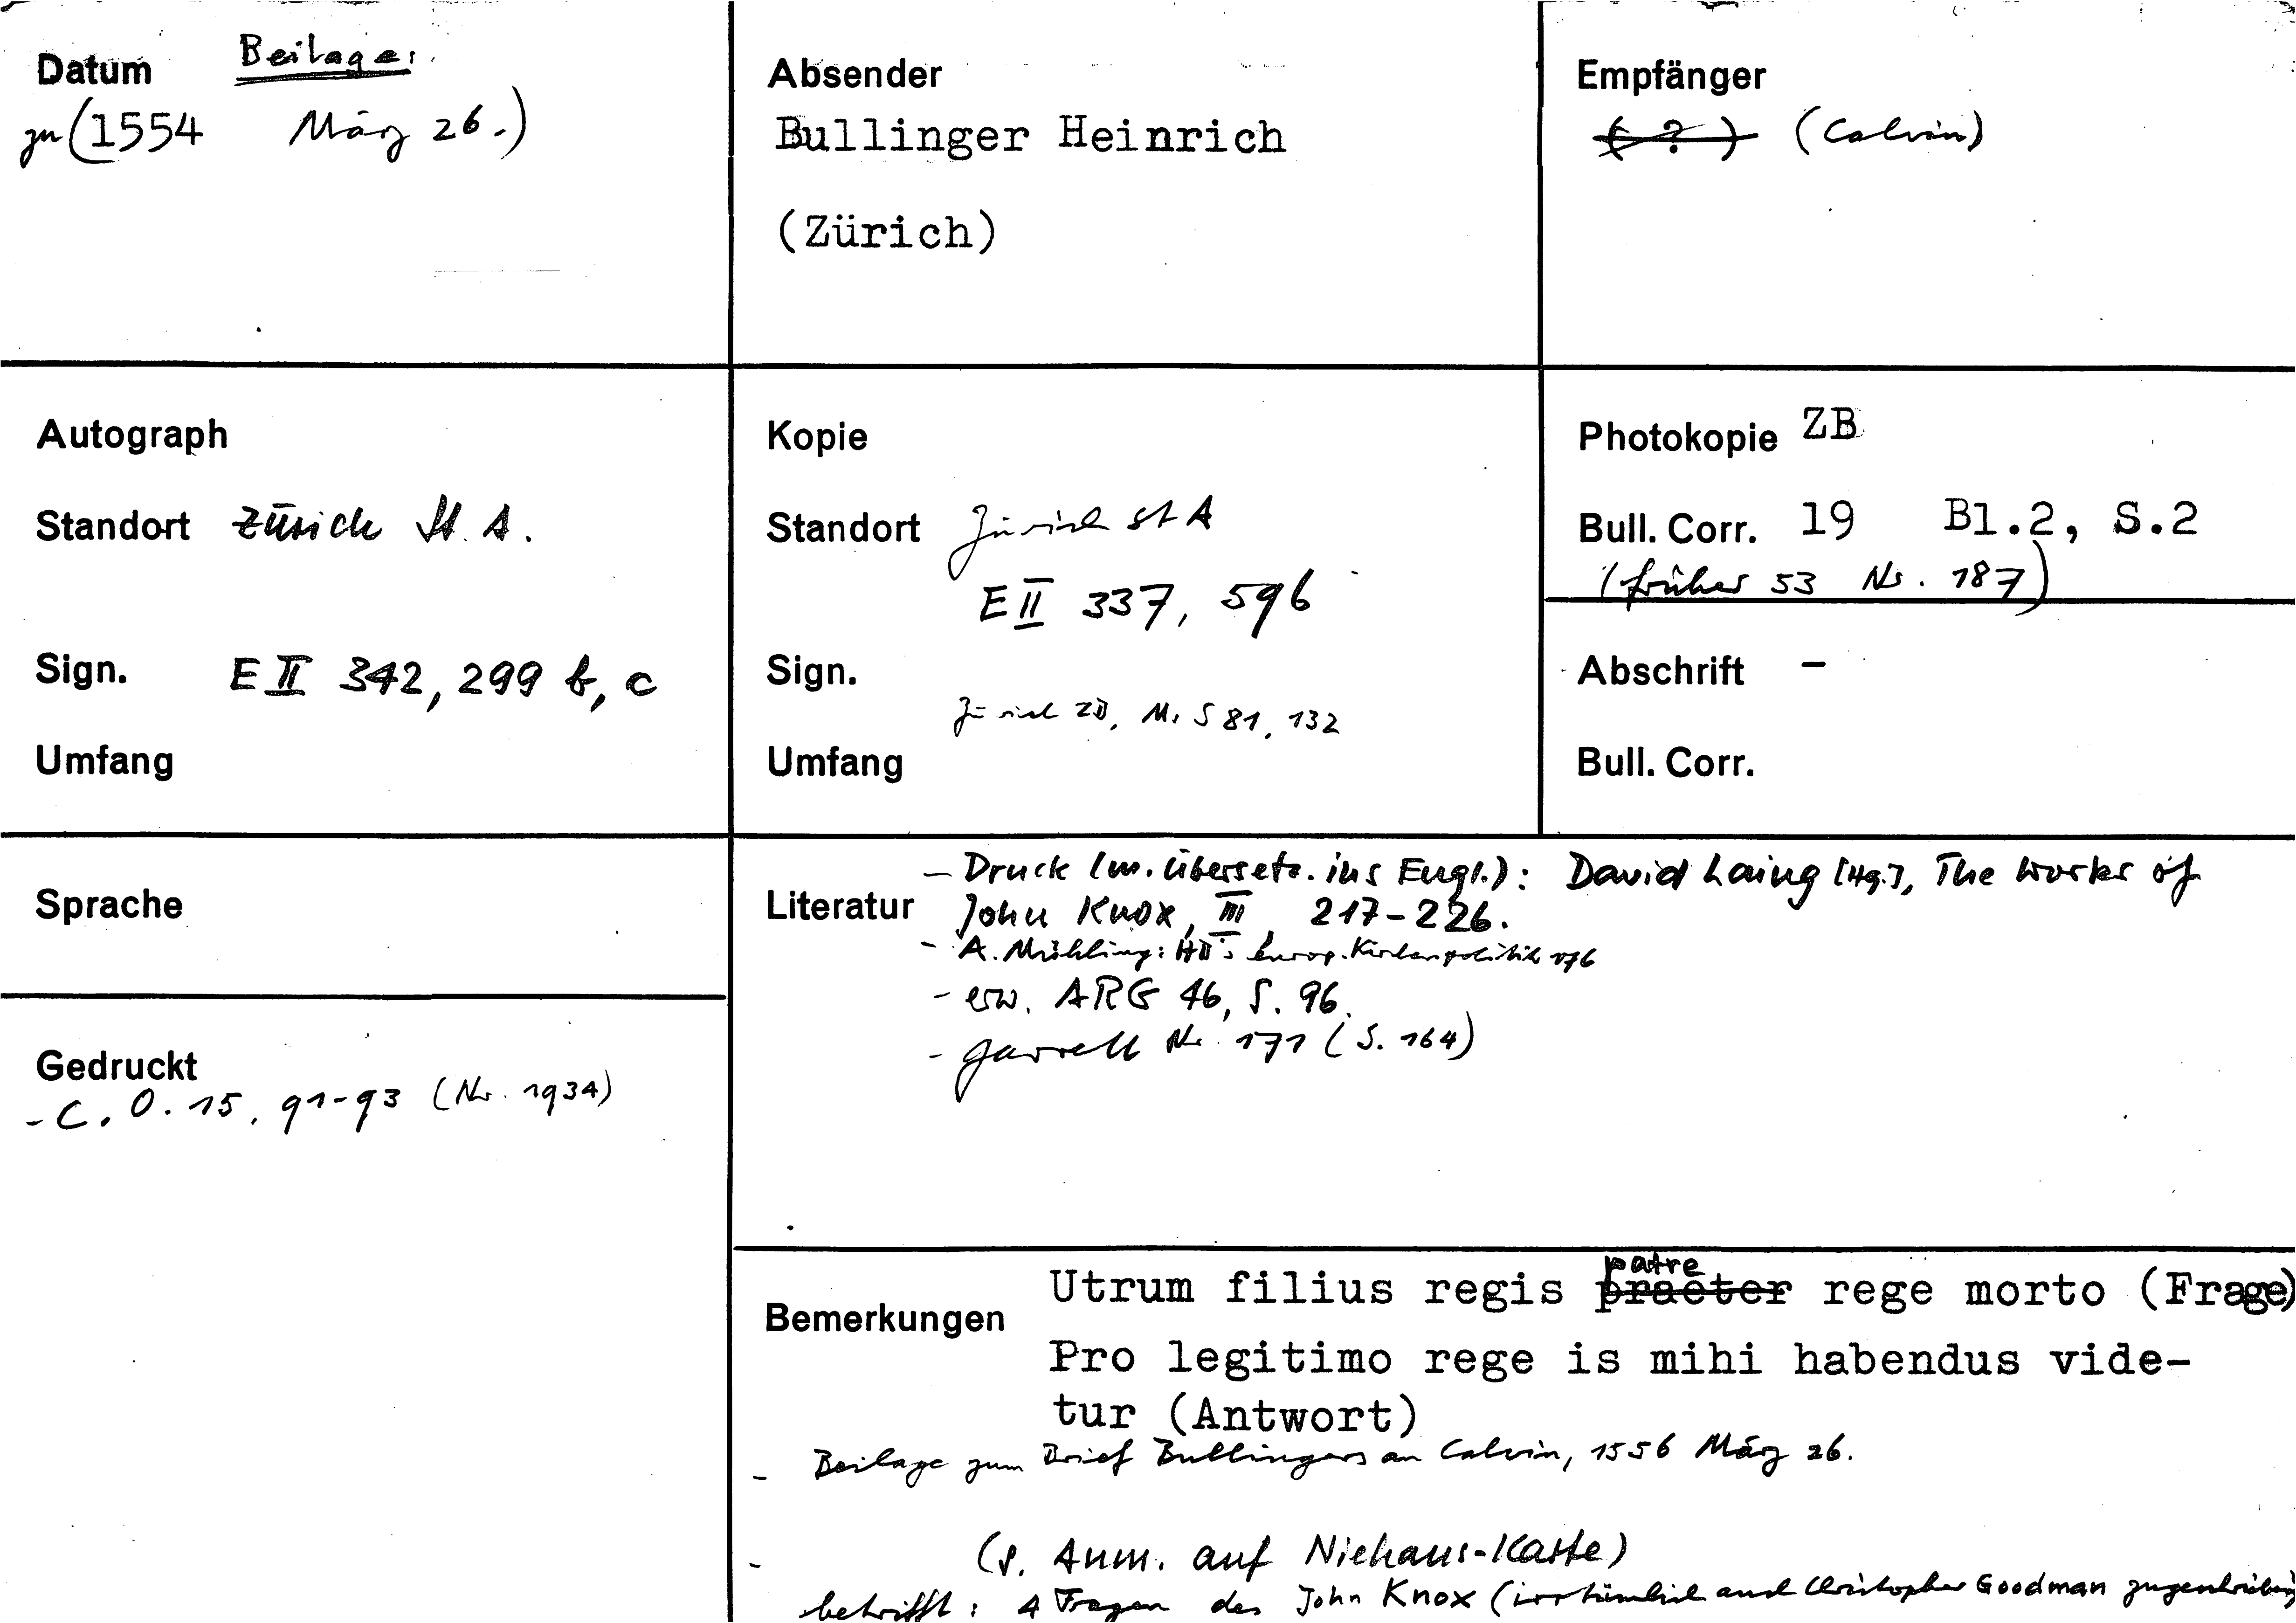 Datum Beilage:
zu (1554 März 26.)
Absender
Bullinger Heinrich
(Zürich)
Empfänger
( ? ) (Calvin)
Autograph
Standort Zürich St. A.
Sign. E II 342, 299 b, c
Umfang
Kopie
Standort Zürich St A
E II 337, 596
Sign.
Zürich ZB, Ms S 81, 132
Umfang
Photokopie ZB
Bull. Corr. 19 Bl.2, S.2
(früher 53 Nr. 187)
Abschrift -
Bull. Corr.
Sprache
Gedruckt
- C. O. 15, 91-93 (Nr. 1934)
Literatur
- Druck (m. Übersetz. ins Engl.): David Laing [Hg.], The Works of
John Knox, III, 217-226.
- A. Mühling: HB's europ. Kirchenpolitik 176
- erw. ARG 46, S. 96.
- Garrett Nr. 171 (S. 164)
Bemerkungen
patre
Utrum filius regis praeter rege morto (Frage)
Pro legitimo rege is mihi habendus vide-
tur (Antwort)
- Beilage zum Brief Bullingers an Calvin, 1556 März 26.
(s. Anm. auf Niehaus-Karte)
- betrifft: 4 Fragen des John Knox (irrtümlich auch Christopher Goodman zugeschrieben)